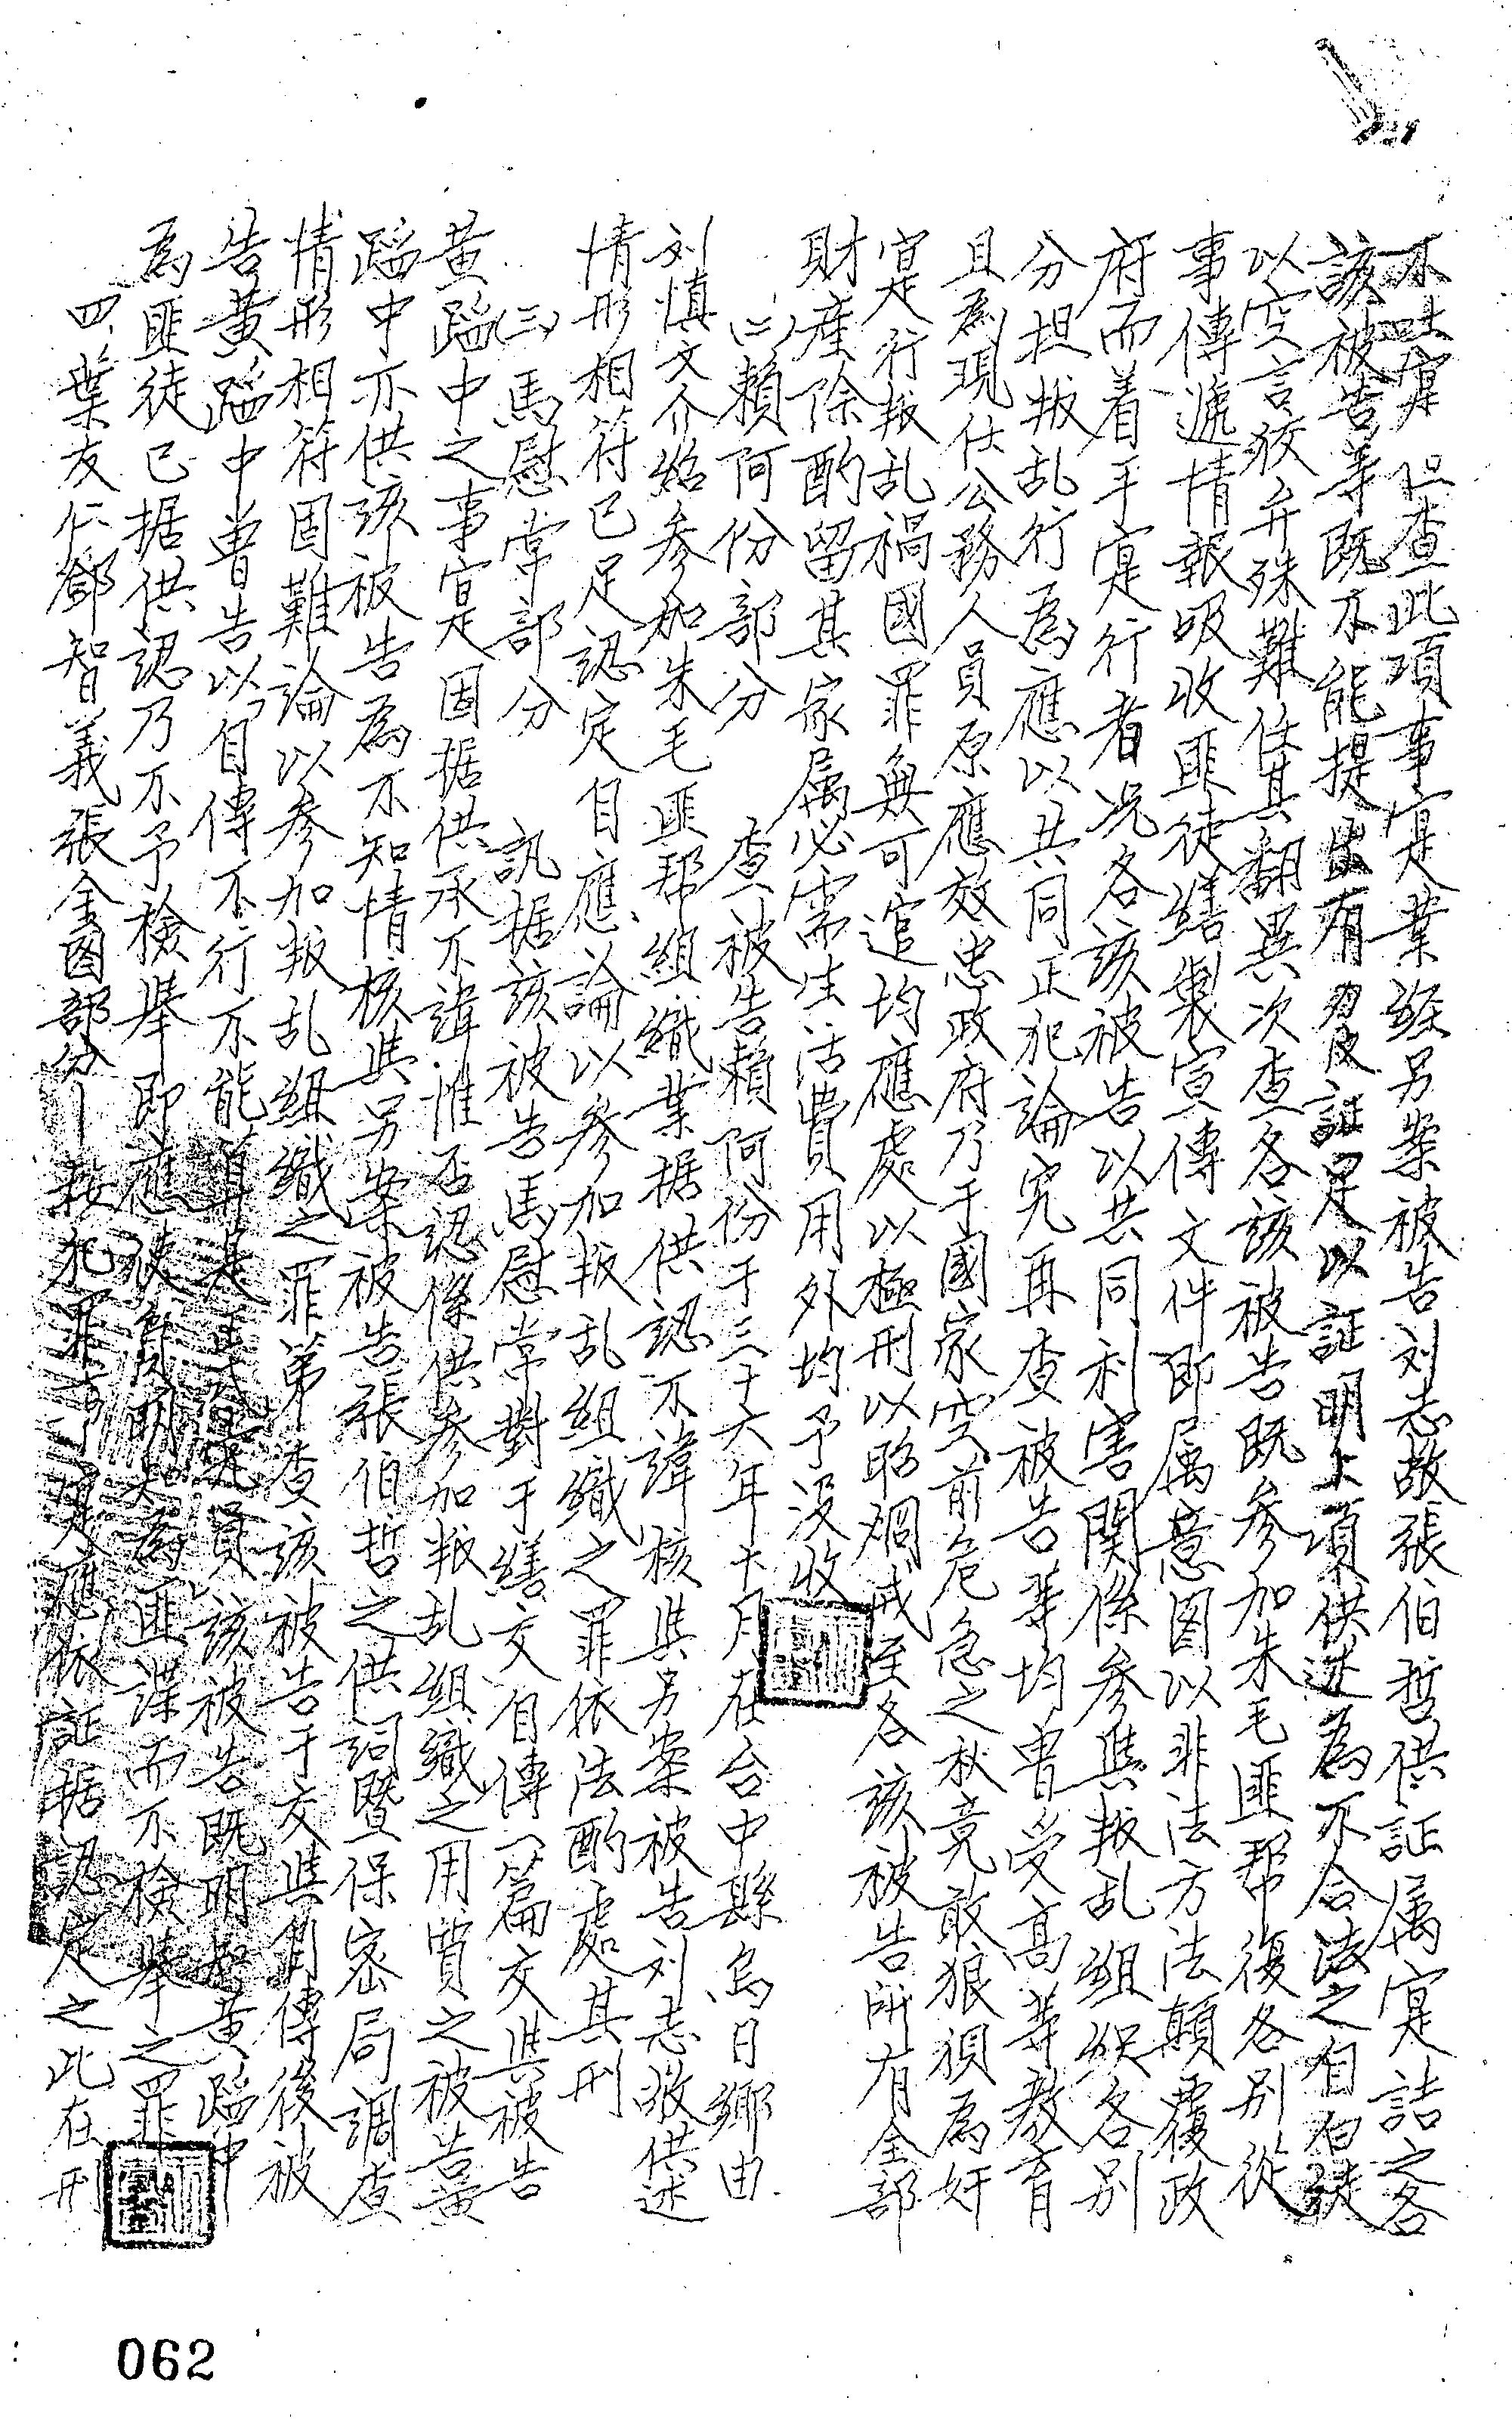 不吐寔但查此項事寔業經另案被告刘志敬張伯哲供証属寔詰之各
該被告等既不能提出有力反証足以証明上項供述為不合法之自白徒
以空言狡弁殊難任其翻異次查各該被告既參加朱毛匪帮復各別從
事傳遞情報吸收匪徒繕製宣傳文件即属意图以非法方法顛覆政
府而着手寔行者况各該被告以共同利害関係參與叛乱組织各別
分担叛乱行為應以共同正犯論究再查被告等均曾受高等教育
且為現任公務人員原應效忠政府乃于國家空前危急之秋竟敢狼狽為奸
寔行叛乱禍國罪無可逭均應處以極刑以昭烱戒至各該被告所有全部
財産除酌留其家属必需生活費用外均予没收
(二)賴阿份部分 查被告賴阿份于三十六年十月在台中縣烏日鄉由
刘慎文介紹參加朱毛匪帮組織業据供認不諱核與另案被告刘志敬供述
情形相符已足認定自應論以參加叛乱組織之罪依法酌處其刑
(三)馬慰常部分 訊据該被告馬慰常對于繕交自傳一篇交與被告
黄蹈中之事寔固据供承不諱惟否認係供參加叛乱組織之用質之被告黄
蹈中亦供該被告為不知情核與另案被告張伯哲之供詞暨保密局調查
情形相符固難論以參加叛乱組織之罪第查該被告于交與自傳後被
告黄蹈中曾告以自傳不行不能算是正式党員該被告既明知黄蹈中
為匪徒已据供認乃不予檢舉即應使負明知為匪諜而不檢舉之罪
四、葉友仁鄧智義張金圖部分 按犯罪事寔應依証据認定之此在刑
062